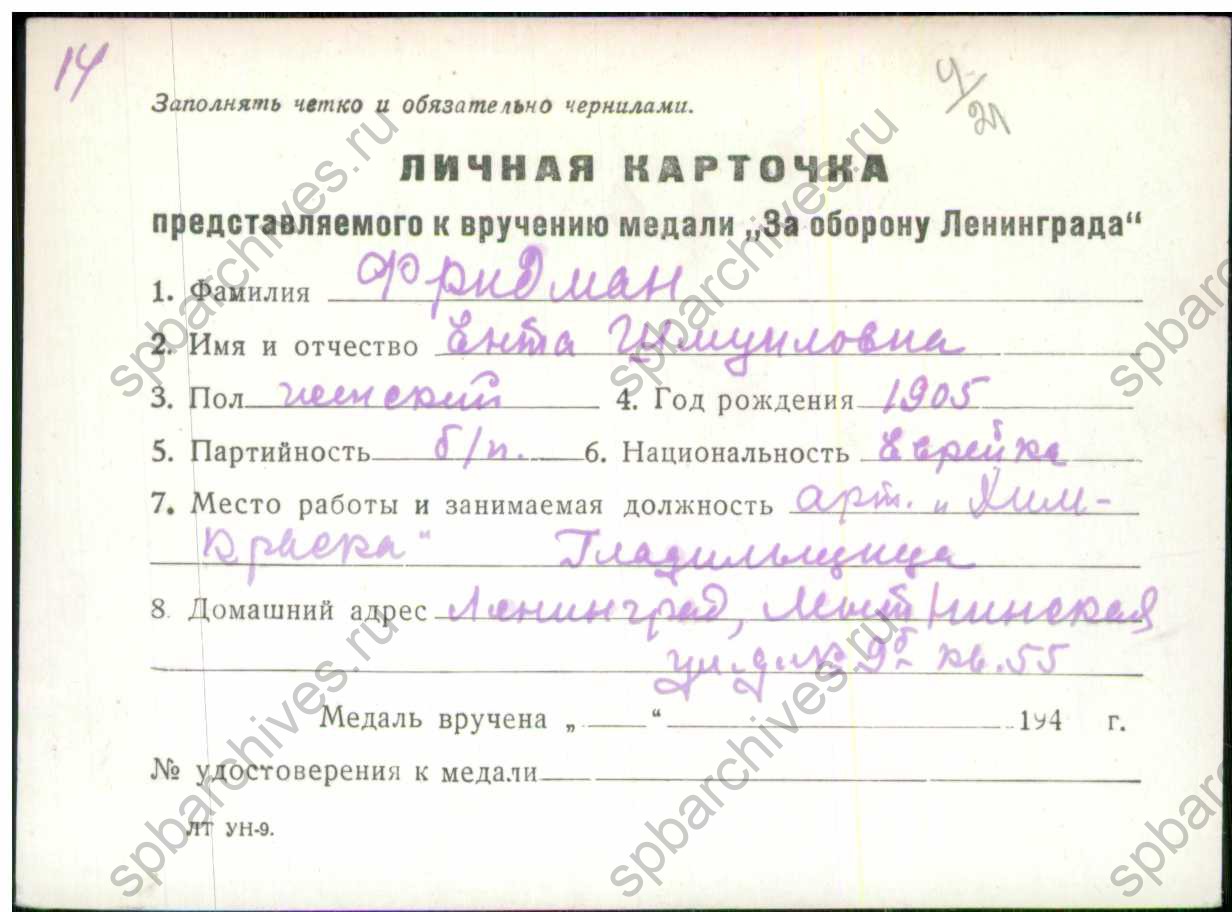 14
Ч-/21
Заполнять четко и обязательно чернилами.
ЛИЧНАЯ КАРТОЧКА
представляемого к вручению медали „За оборону Ленинграда“
1. Фамилия Фридман
2. Имя и отчество Ента Шмуиловна
3. Пол женский 4. Год рождения 1905
5. Партийность б/п. 6. Национальность Еврейка
7. Место работы и занимаемая должность арт. „Хим-
краска“ Гладильщица
8. Домашний адрес Ленинград, Мытнинская
ул. д. № 9б кв. 55
Медаль вручена „ “ 194 г.
№ удостоверения к медали
ЛТ УН-9.
spbarchives.ru
spbarchives.ru
spbarchives.ru
spbarchives.ru
spbarchives.ru
spbarchives.ru